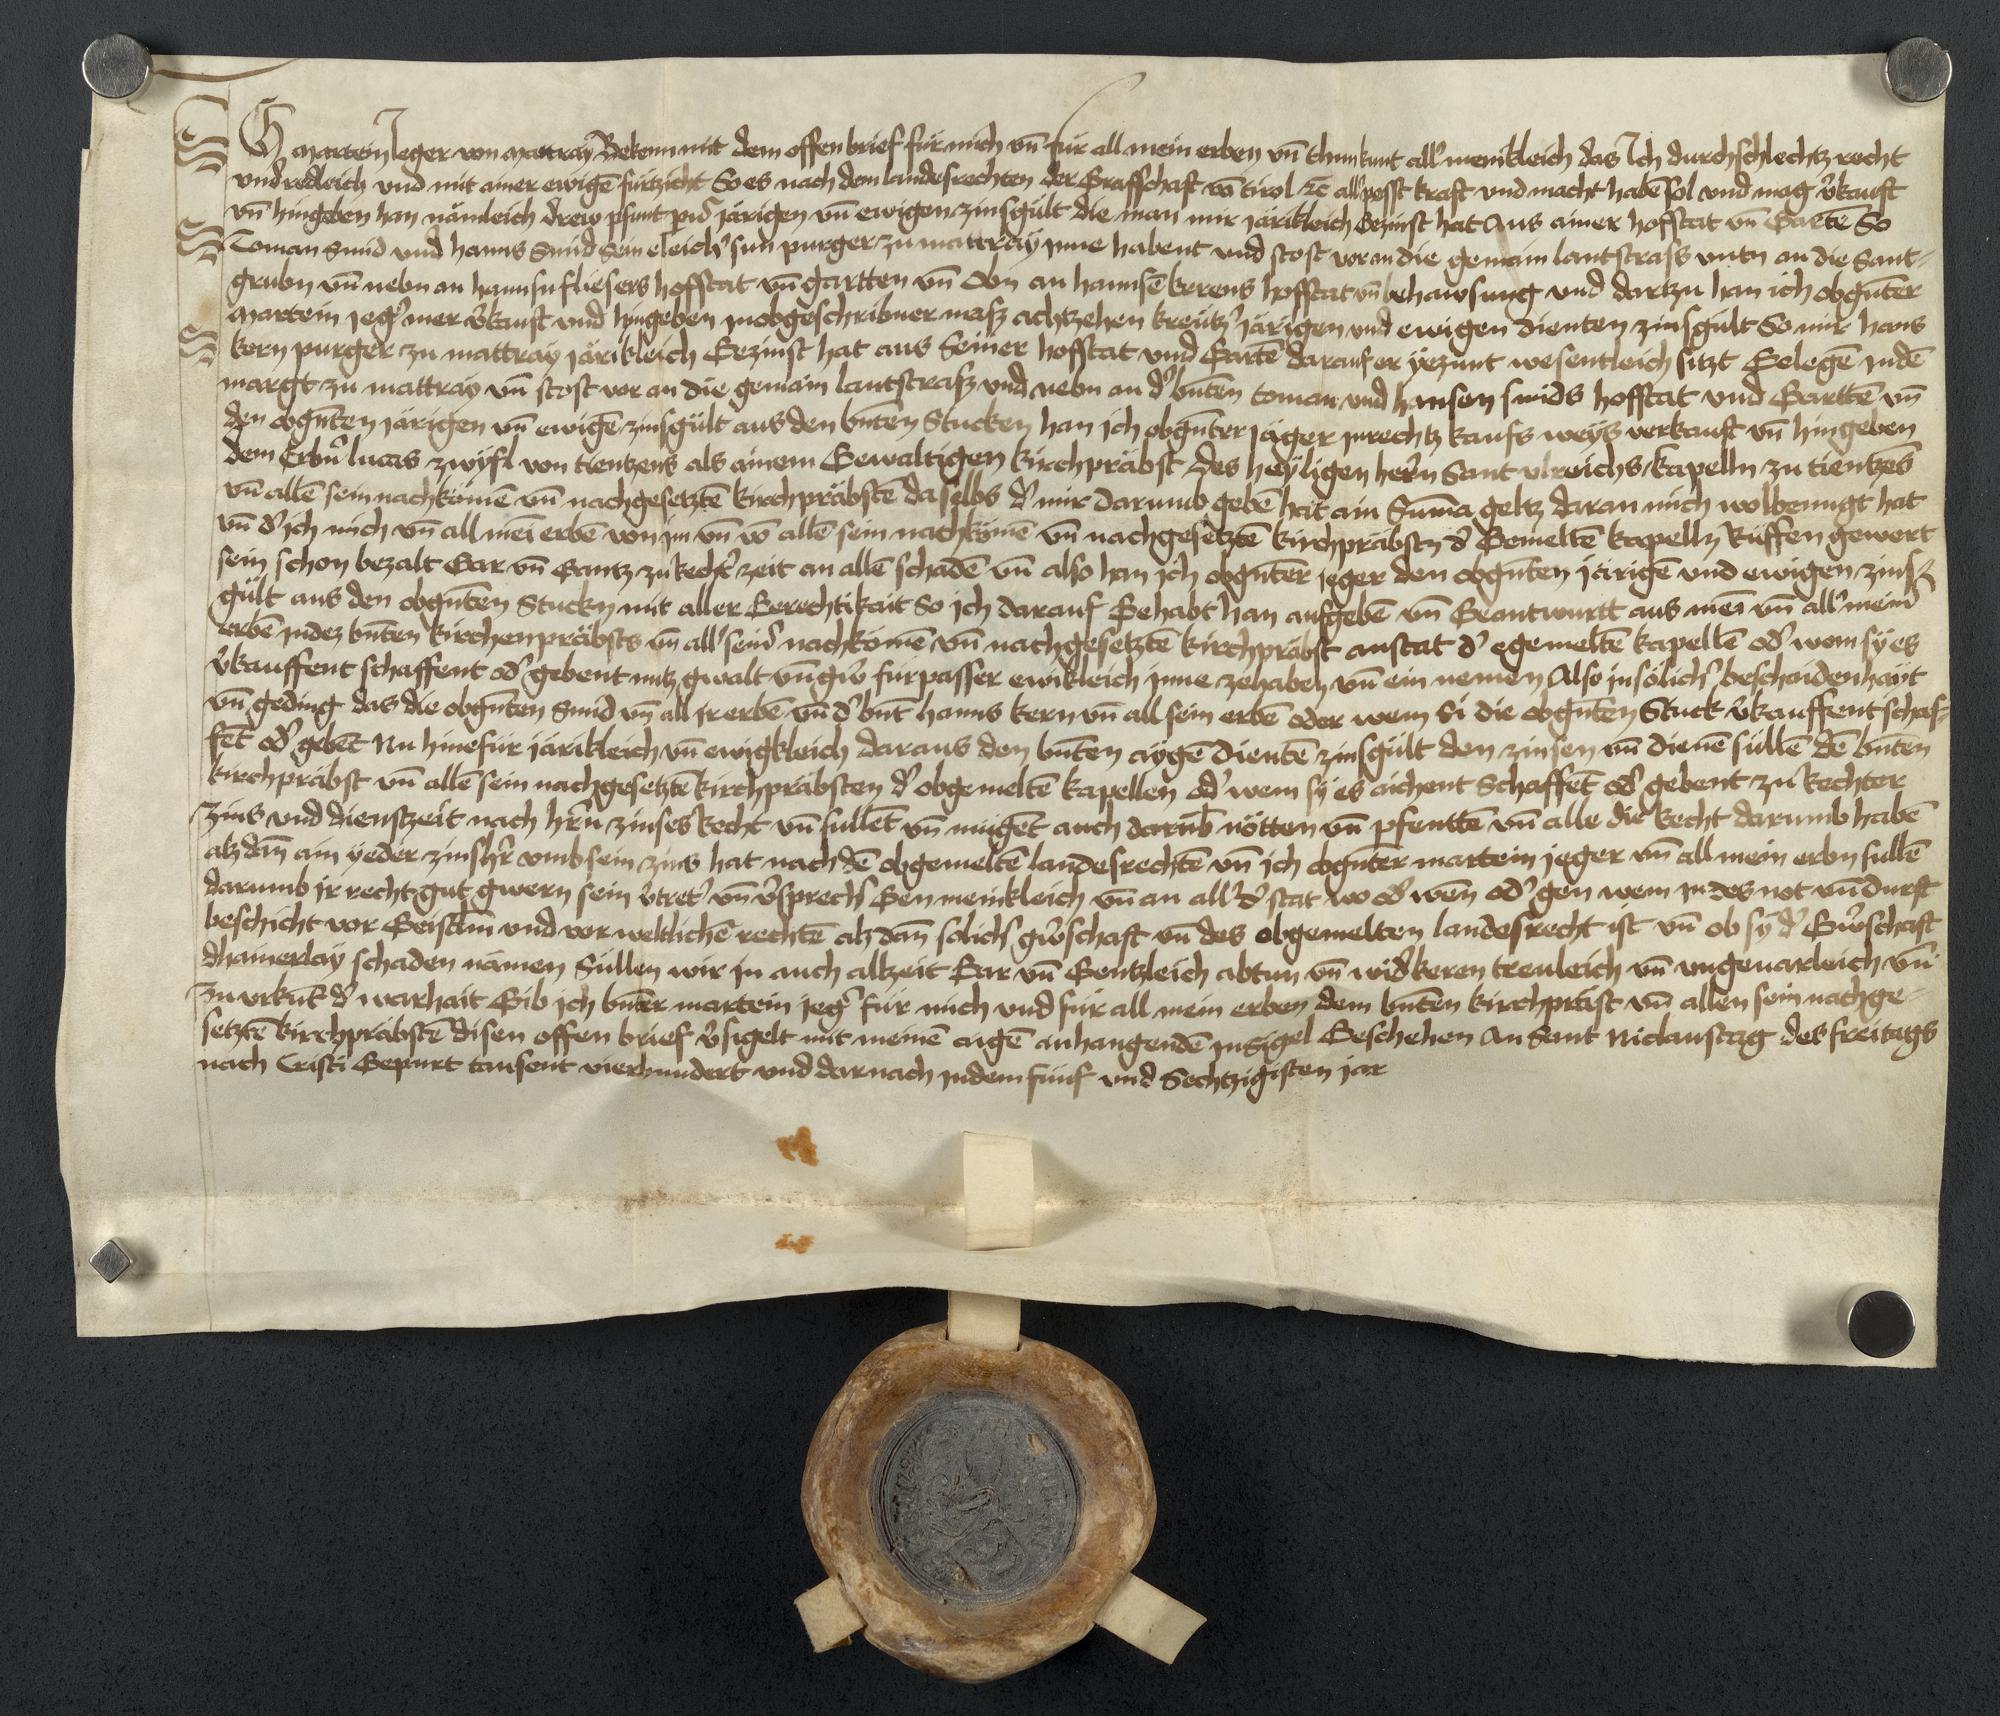 Ich martein Jeger von mattray Bekenn mit dem offen brief für mich vn̄ für all mein erben vn̄ thun kunt all' menikleich das Ich durchschlechtz recht
vnd redleich vnd mit ainer ewigē furtzicht So es nach dem landesrechten der Graffschaft vō tirol ꝛc all' pesst kraft vnd macht habē sol vnd mag v'kauft
vn̄ hingeben han nämleich drew pfunt p'n' järigen vn̄ ewigen zinsgült die man mir järikleich Gezinst hat Aus ainer hofstat vn̄ Gartē So
Toman Smid vnd hanns Smid Sein eleich' sun purger zu mattray Inne habent vnd stost vor an die gemain lantstrass vntn an die Sant-
grubn vn̄ nebn an hannsn fliesers hofstat vn̄ gartten vn̄ Obn an hannsē kerens hofstat vn̄ behawsung vnd dartzu han ich obgn̄ter
Martein Jeg' mer v'kauft vnd hingeben In obgeschribner masz achtzehen kreutz' järigen vnd ewigen dienten zinsgült So mir hans
kern purger zu mattray järikleich Gezinst hat aus Seiner hofstat vnd Gartē darauf er yezunt wesentleich sitzt Gelegē Indē
margt zu mattray vn̄ stost vor an die gemain lantstrasz vnd nebn an d' bn̄ten toman vnd hansen smids hofstat vnd Garttē vn̄
den obgn̄ten järigen vn̄ ewigē zinsgült aus den bn̄ten Stucken han ich obgn̄ter Jäger In rechtz kaufs weys verkauft vn̄ hingeben
dem Erbn̄ lucas zwyfl von tientzens als ainem Gewaltigen kirchpräbst des heyligen herrn Sant vlreichs kapelln zu tientzēs
vn̄ allē sein nachkömē vn̄ nachgesetztē kirchpräbstē daselbs d' mir darumb gebē hat ain Sūma geltz daran mich wol benugt hat
vn̄ d' ich mich vn̄ all mei erbē von im vn̄ vō allē sein nachkömē vn̄ nachgesetztē kirchpräbstn d' Gemeltē kapelln Rüffen gewert
sein schon bezalt Gar vn̄ Gantz zu Recht' zeit an allē schadē vn̄ also han ich obgn̄ter jeger den obgn̄ten järigē vnd ewigen zins-
gült aus den obgn̄ten Stuckn mit aller Gerechtikait So ich darauf Gehabt han aufgebē vn̄ Geantwurtt aus mei vn̄ all' mein'
erbē Indez bn̄ten kirchenpräbsts vn̄ all' sein' nachkömē vn̄ nachgesetztē kirchpräbst anstat d' egemeltē kapellē od' wem sy es
v'kauffent schaffent od' gebent nutz gwalt vn̄ gw' fürpasser ewikleich Inne zehaben vn̄ ein nemen Also in sölich' beschaidenhayt
vn̄ geding das die obgn̄ten Smid vn̄ all Ir erbē vn̄ d' bn̄t hanns kern vn̄ all sein erbē oder wem Si die obgn̄ten Stuck v'kauffent schaf-
fēt od' gebēt Nu hinefür järikleich vn̄ ewigkleich daraus den bn̄ten aygē dientē zinsgült den zinsen vn̄ dienē süllē dē bn̄ten
kirchpräbst vn̄ allē sein nachgesetztē kirchpräbsten d' obgemeltē kapellen od' wem sy es aichent Schaffēt od' gebent zu Rechter
zins vnd dienstzeit nach hr̄n zinses Recht vn̄ süllēt vn̄ mügēt auch darūb nötten vn̄ pfenttē vn̄ alle die Recht darumb habē
alz dan̄ ain yeder zinshr̄ vmb sein zins hat nach dē obgemeltē landesrechtē vn̄ ich obgn̄ter martein jeger vn̄ all mein erbn süllē
darumb ir recht gut gwern sein v'tret' vn̄ v'sprech' Gen menikleich vn̄ an all' d' stat wo od' wen̄ od' gen wem In des not vn̄ durft
beschicht vor Geistlīn̄ vnd vor weltlichē rechtē alz dan̄ solich' gw'schaft vn̄ des obgemelten landesrecht ist vn̄ ob sy d' Gw'schaft
dhainerlay schaden nämen Süllen wir in auch allzeit Gar vn̄ Gentzleich abtun vn̄ wid'keren treuleich vn̄ vngeuarleich vn̄
Zu vrkūt d' warhait Gib ich bn̄ter martein Jeg' für mich vnd für all mein erben dem bn̄ten kirchpräst vn̄ allen sein nachge-
setztē kirchpräbstē disen offen brief v'sigelt mit meinē aigē anhangendē Insigel Geschehen An Sant Niclaustag des freitags
nach Cristi Gepurt tausent vierhundert vnd darnach Indem fünf vnd Sechtzigisten jar